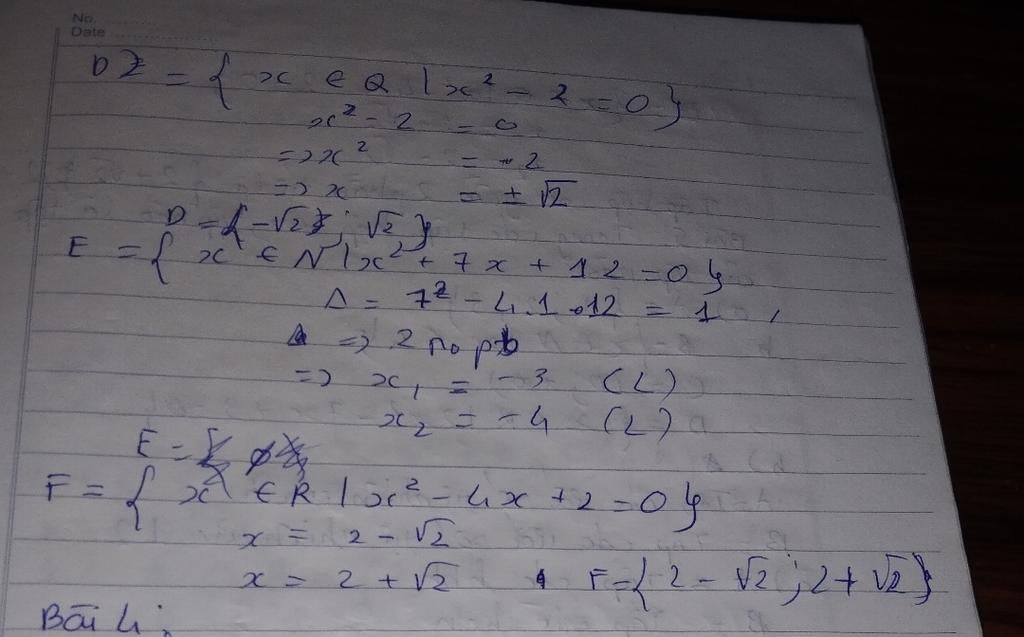 No.
Date
D = { x ∈ Q | x² - 2 = 0 }
x² - 2 = 0
=> x² = 2
=> x = ± √2
D = { -√2 ; √2 }
E = { x ∈ N | x² + 7x + 12 = 0 }
Δ = 7² - 4.1.12 = 1
=> 2 no pb
=> x₁ = -3 (L)
x₂ = -4 (L)
E = ∅
F = { x ∈ R | x² - 4x + 2 = 0 }
x = 2 - √2
x = 2 + √2 F = { 2 - √2 ; 2 + √2 }
Bài 4: